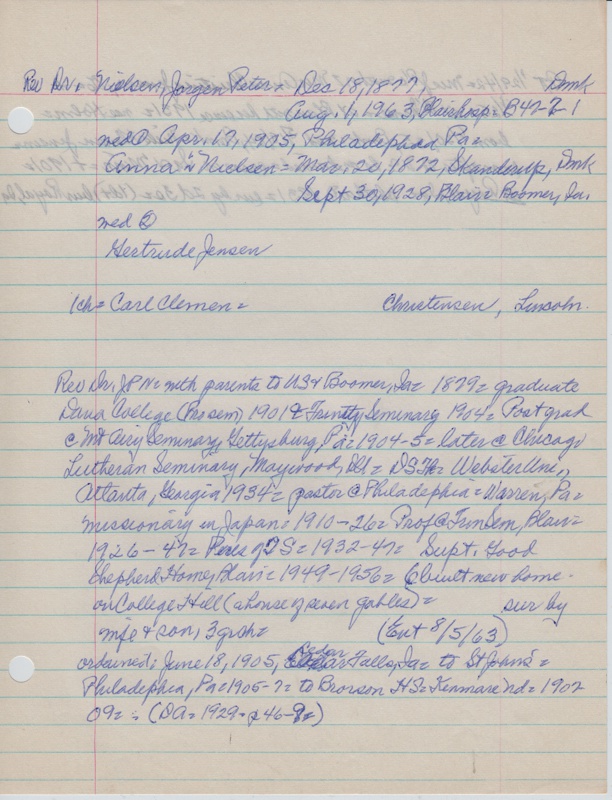 Rev Dr. Nielsen, Jorgen Peter = Dec 18, 1877, Dmk
Aug. 1, 1963, Blair Hosp = B47-7-1
med ①: Apr. 17, 1905, Philadelphia Pa =
Anna "L" Nielsen = Mar. 20, 1872, Skanderup, Dmk
Sept 30, 1928, Blair = Boomer, Ia.
med ②
Gertrude Jensen
1ch = Carl Clemen = Christensen, Lincoln.
Rev Dr. JPN = with parents to US & Boomer, Ia = 1879 = graduate
Dana College (Pro sem) 1901 & Trinity Seminary 1904 = Post grad
@ Mt Airy Seminary, Gettysburg, Pa = 1904-5 = later @ Chicago
Lutheran Seminary, Maywood, Ill. = DSTh = Webster Uni.,
Atlanta, Georgia, 1934 = pastor @ Philadelphia = Warren, Pa =
missionary in Japan = 1910-26 = Prof @ Trin Sem, Blair =
1926-47 = Pres of TS = 1932-47 = Supt. Good
Shepherd Home, Blair = 1949-1956 = (built new home -
on College Hill (a house of seven gables) = sur by
wife & son, 3 grch = (Ent 8/5/63)
ordained: June 18, 1905, Cedar Falls, Ia = to St John's =
Philadelphia, Pa = 1905-7 = to Brorson HS = Kenmare nd = 1907
09 = : (DA = 1929 - p 46-8 =)